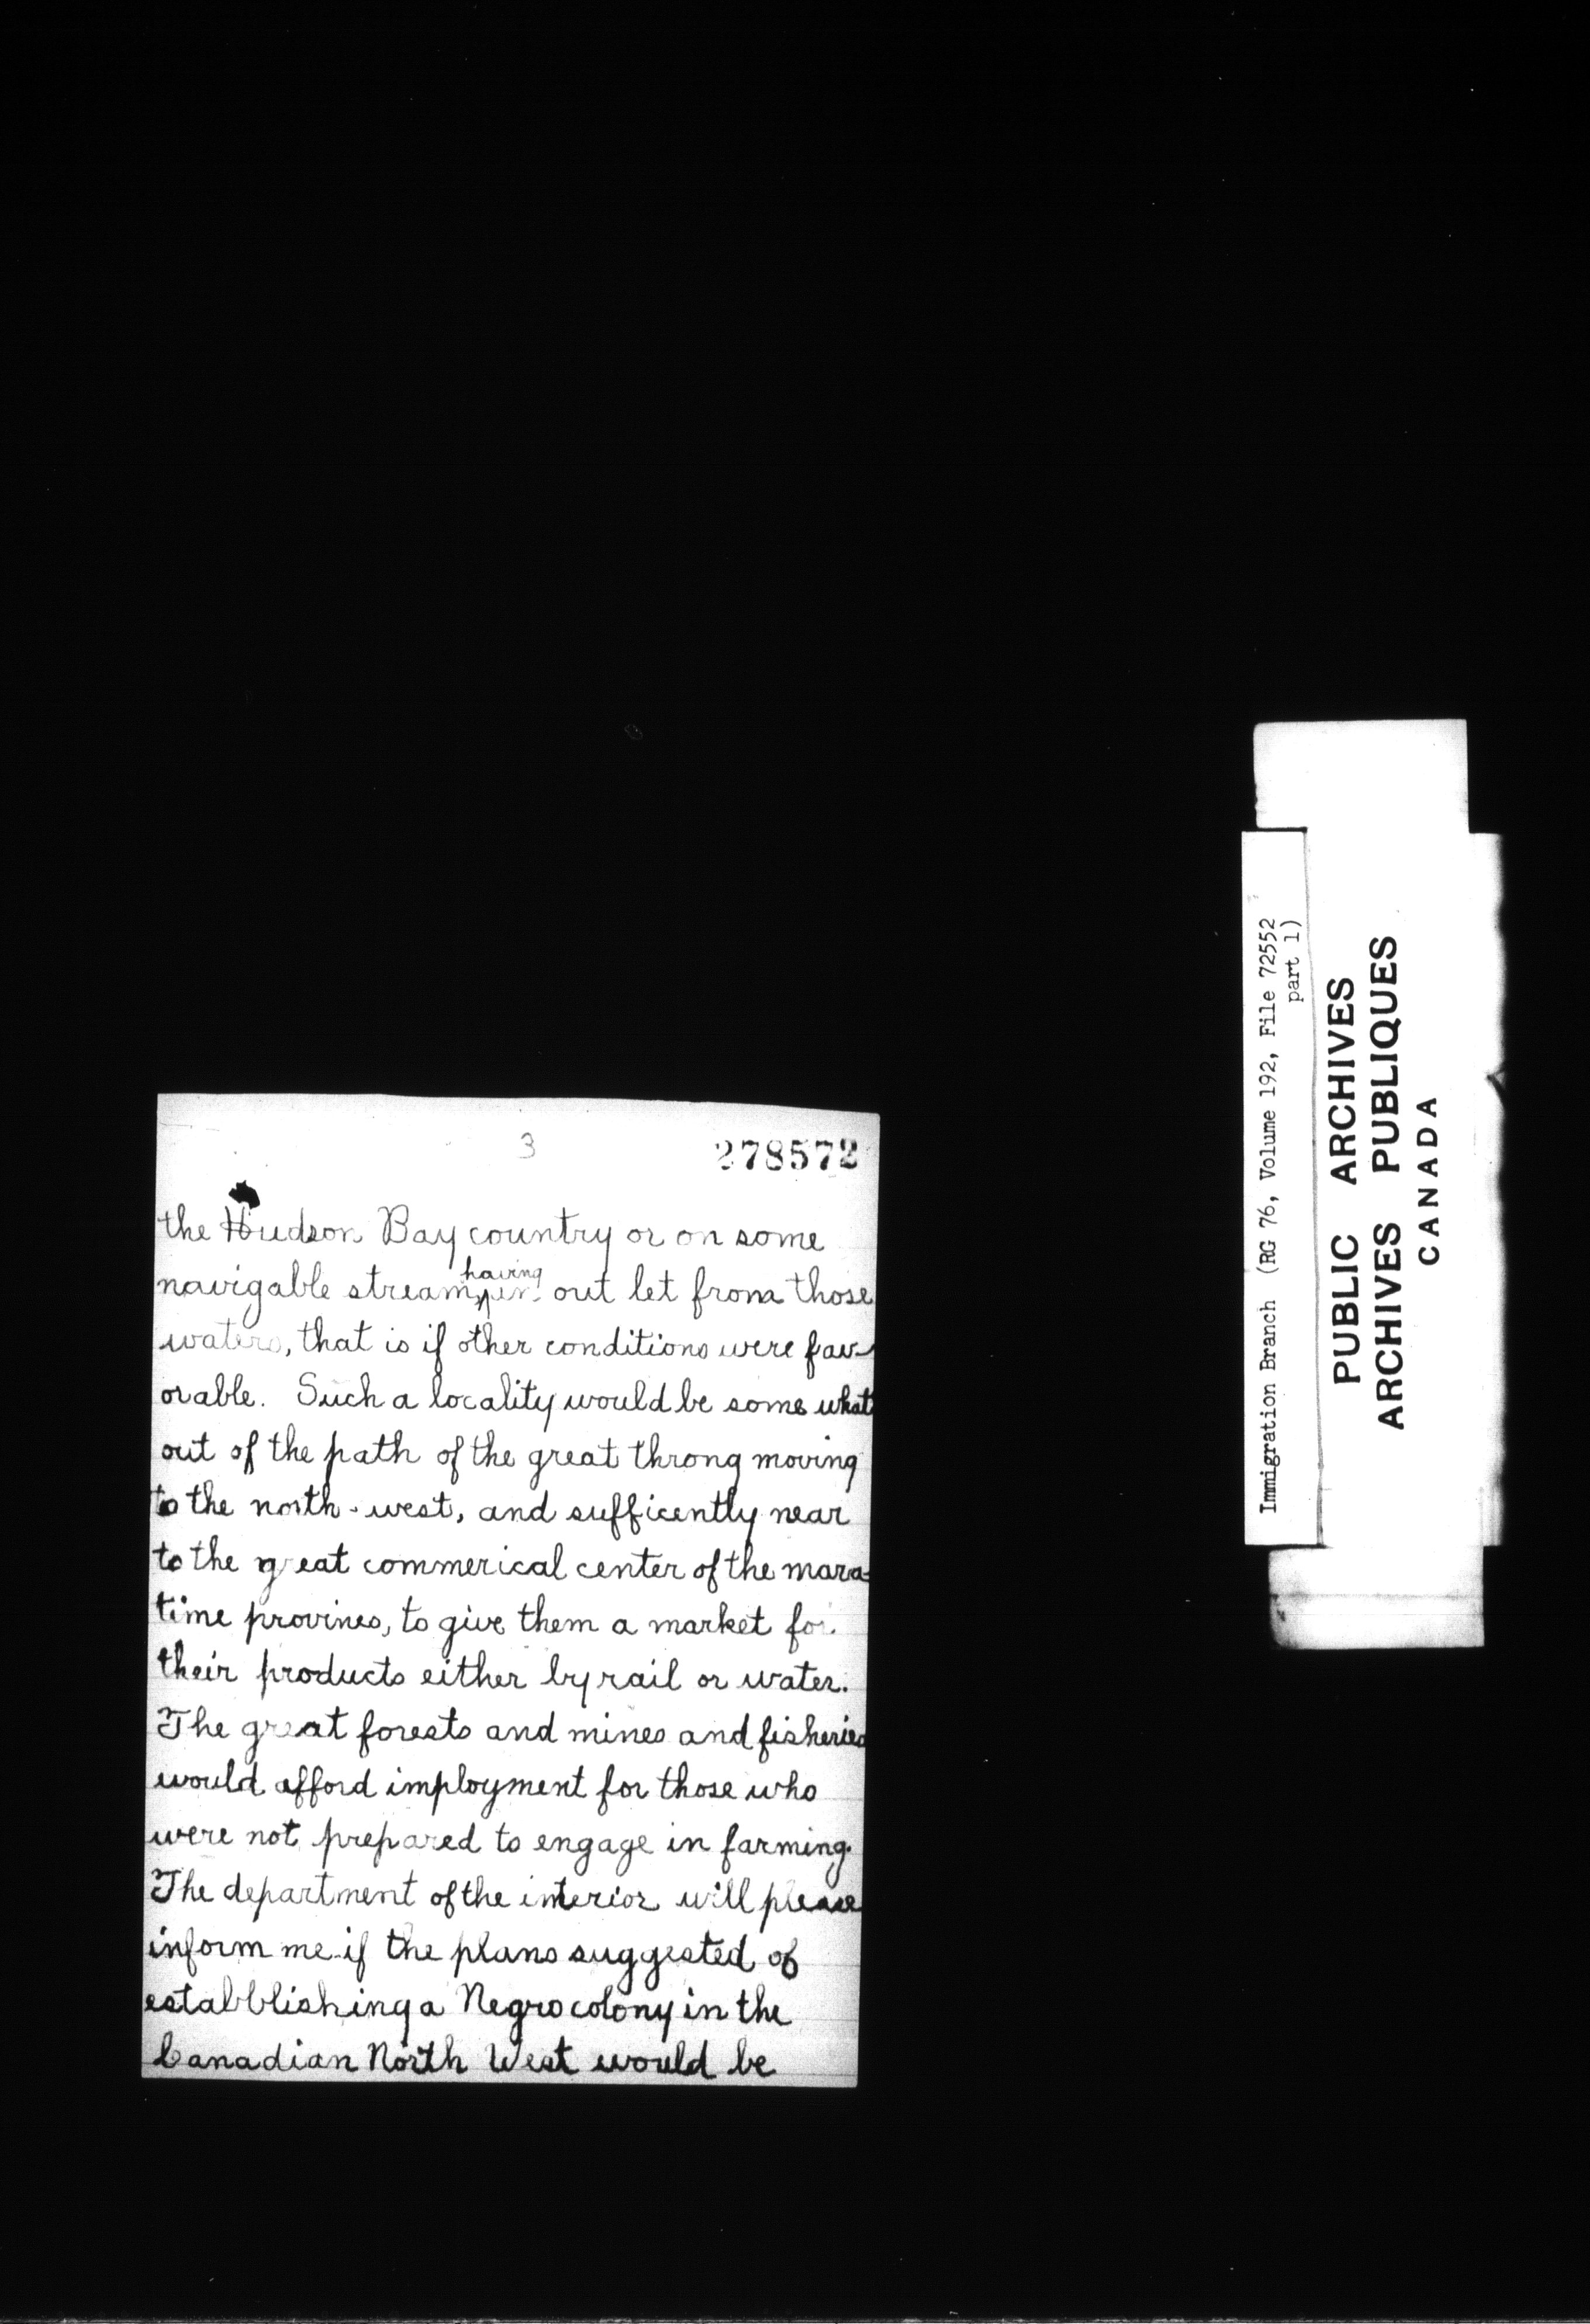 3
278572
the Hudson Bay country or on some
navigable stream, having out let from those
waters, that is if other conditions were fav-
orable. Such a locality would be some what
out of the path of the great throng moving
to the north-west, and sufficently near
to the great commerical center of the mara-
time provines, to give them a market for
their products either by rail or water.
The great forests and mines and fisheries
would afford imployment for those who
were not prepared to engage in farming.
The department of the interior will please
inform me if the plans suggested of
establishing a Negro colony in the
Canadian North West would be
Immigration Branch (RG 76, Volume 192, File 72552
part 1)
PUBLIC ARCHIVES
ARCHIVES PUBLIQUES
CANADA